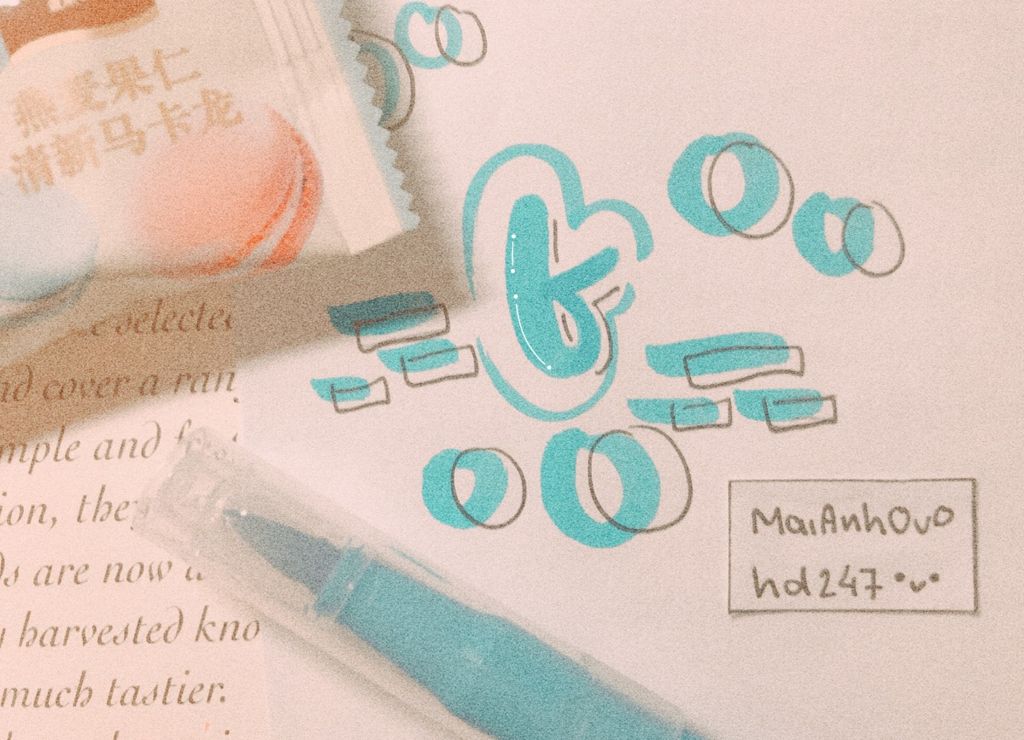 燕麦果仁
清新马卡龙
e selected
nd cover a ran
mple and
ion, they
ds are now a
y harvested kno
much tastier.
k
MaiAnhOvO
hd247